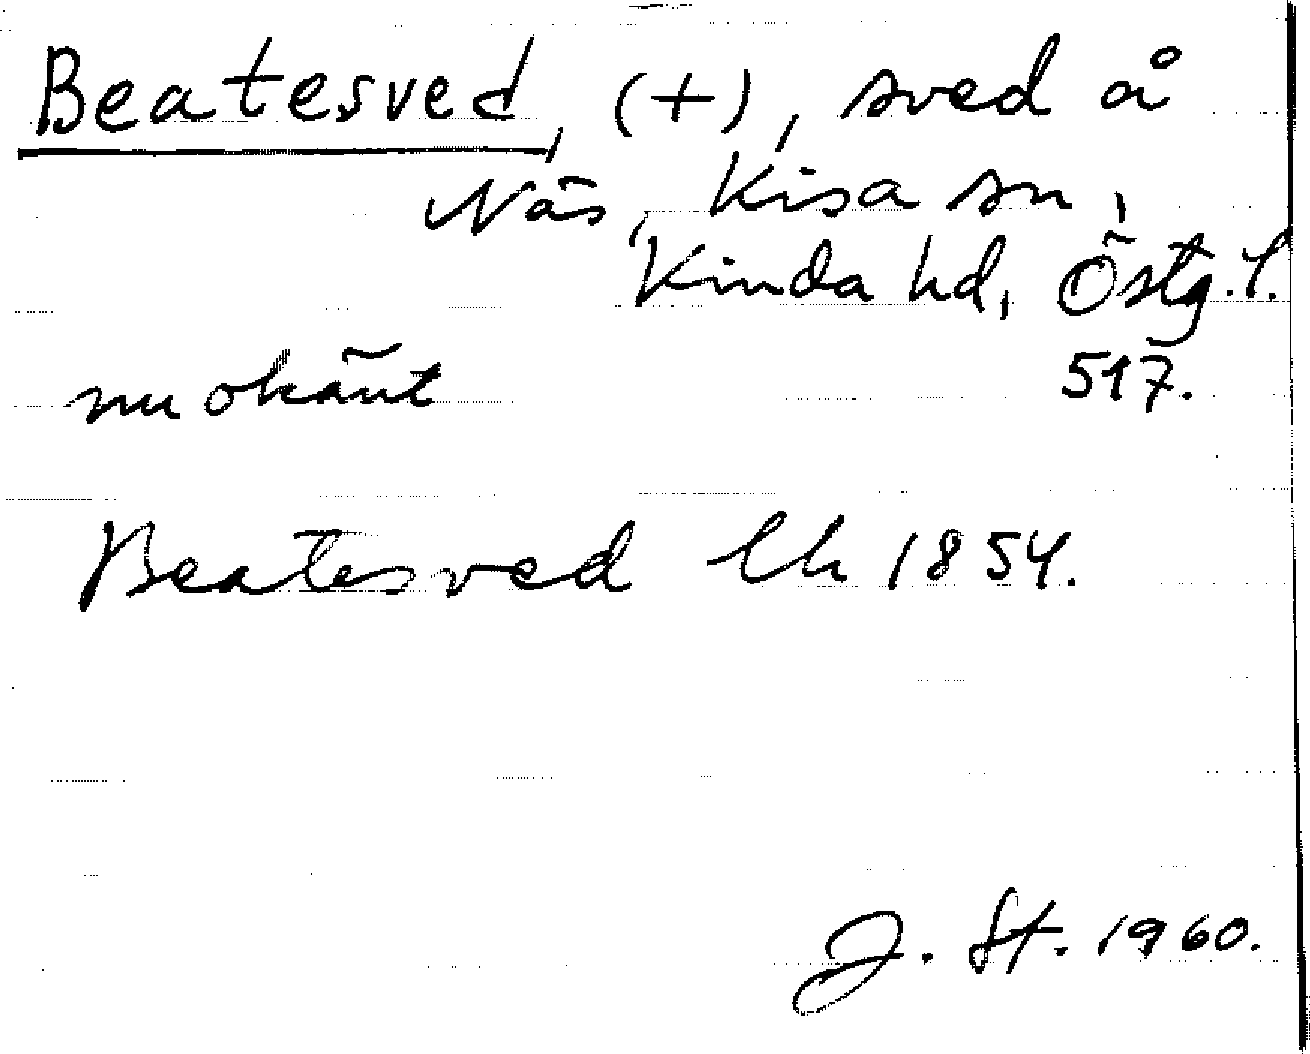 Beatesved, (+), sved å
Näs, Kisa sn,
Kinda hd, Östg.l.
nu okänt 517.
Beatesved lh 1854.
J. St. 1960.